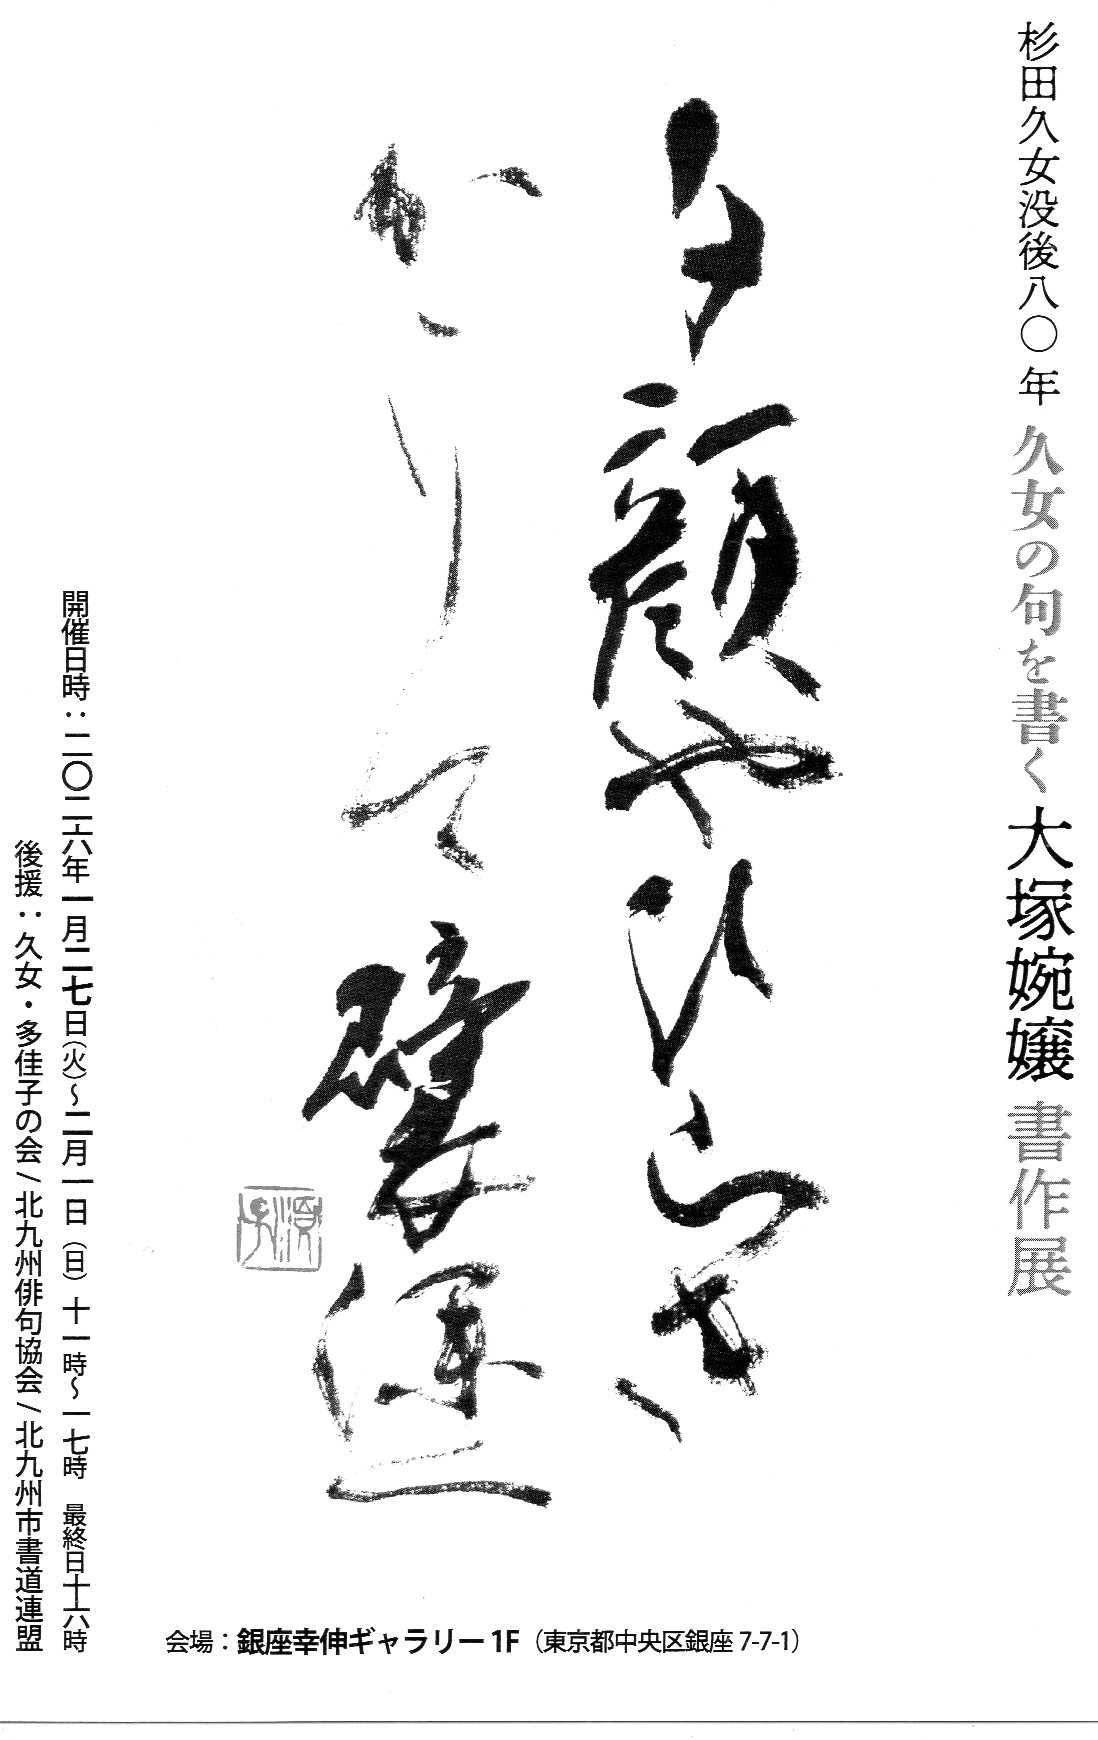 杉田久女没後八〇年 久女の句を書く 大塚婉嬢 書作展
夕顔やひらき
かゝりて襞深く
開催日時：二〇二六年一月二七日（火）～二月一日（日）十一時～一七時　最終日十六時
後援：久女・多佳子の会 / 北九州俳句協会 / 北九州市書道連盟
会場：銀座幸伸ギャラリー 1F（東京都中央区銀座 7-7-1）